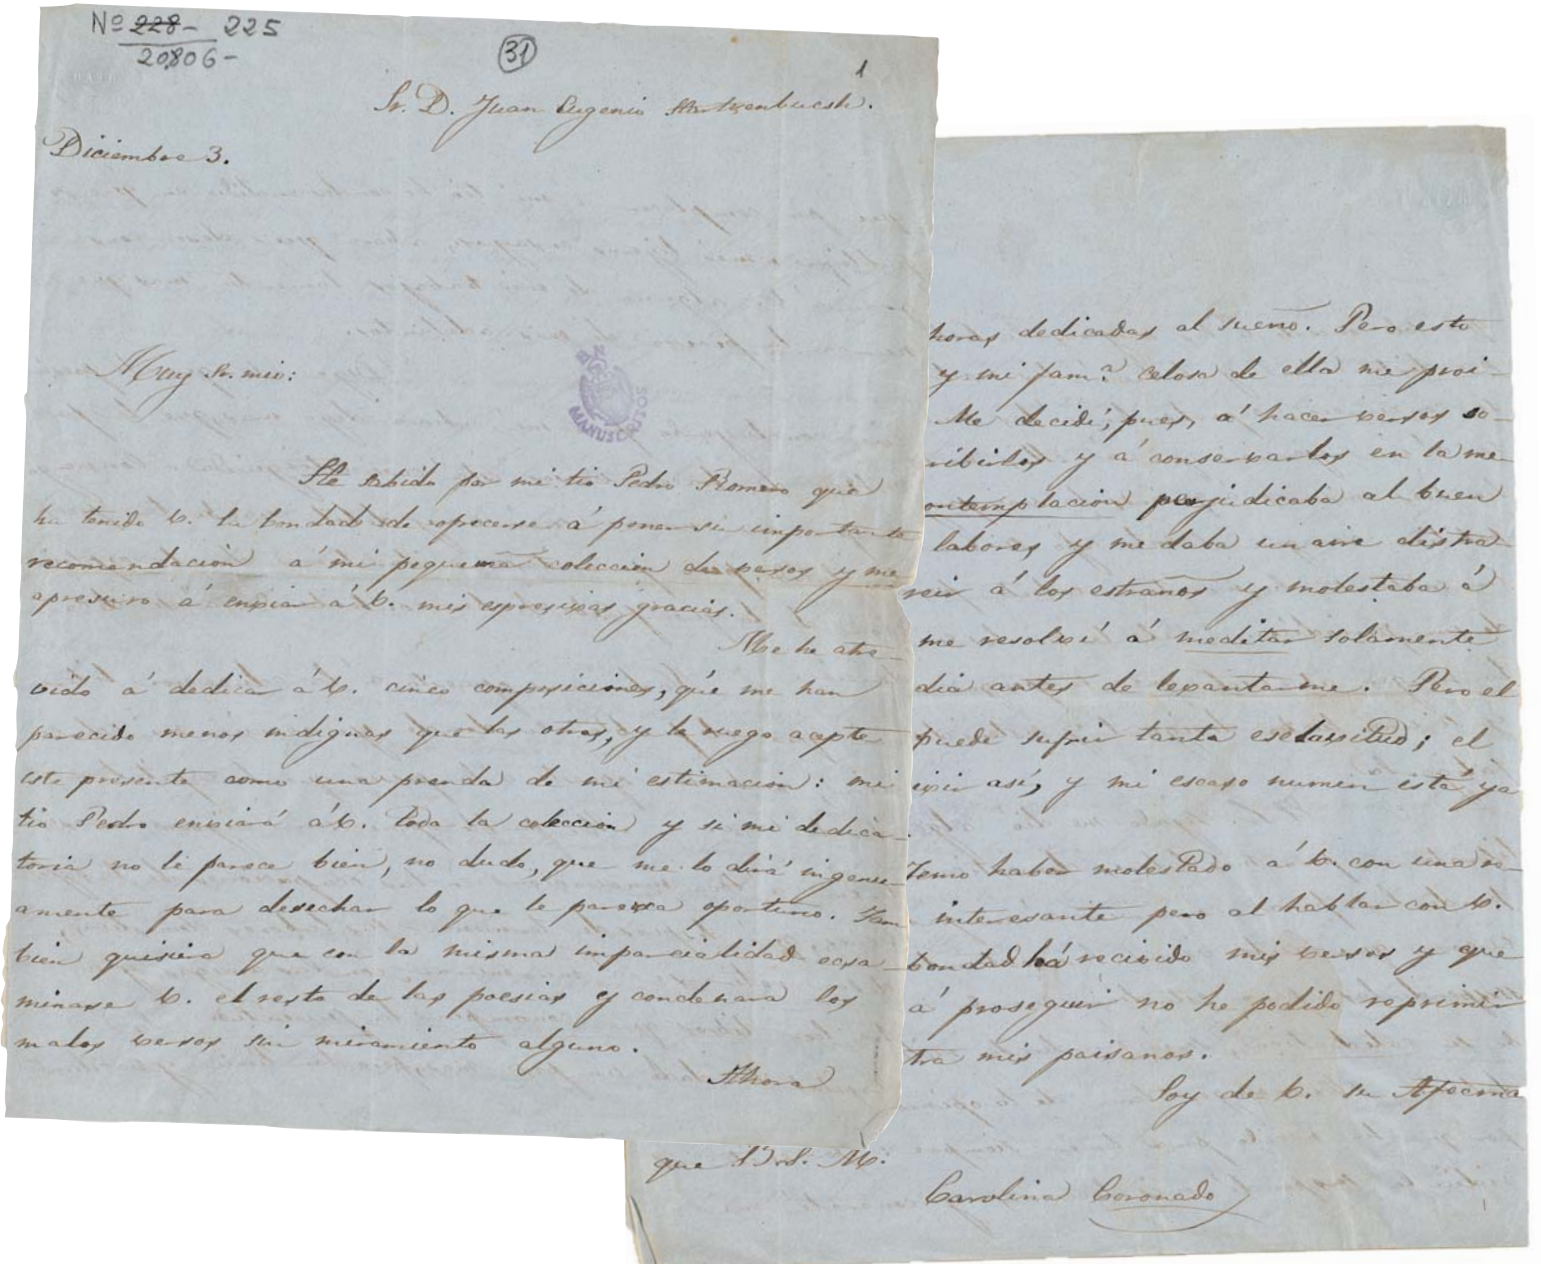 Nº 228- 225
20,806-
31
1
Sr. D. Juan Eugenio Hartzenbucsh.
Diciembre 3.
Muy Sr. mio:
BN
MANUSCRITOS
He sabido por mi tio Pedro Romero que
ha tenido V. la bondad de ofrecerse á poner su importante
recomendacion á mi pequeña coleccion de versos y me
apresuro á enviar á V. mis espresivas gracias.
Me he atre-
vido á dedicar á V. cinco composiciones, que me han
parecido menos indignas que las otras, y le ruego acepte
este presente como una prenda de mi estimacion: mi
tio Pedro enviará á V. toda la coleccion y si mi dedica-
toria no le parece bien, no dudo, que me lo dirá ingenu-
amente para desechar lo que le parezca oportuno. Tam
bien quisiera que con la misma imparcialidad ecsa-
minase V. el resto de las poesias y condenara los
malos versos sin miramiento alguno.
Ahora
horas dedicadas al sueño. Pero esto
y mi famª celosa de ella me proi-
Me decidí, pues, á hacer versos so-
ribirlos y á conservarlos en la me-
ontemplacion perjudicaba al buen
labores y me daba un aire distra-
reir á los estraños y molestaba á
me resolví á meditar solamente
dia antes de levantarme. Pero el
puede sufrir tanta esclavitud; el
ivir así, y mi escaso numen está ya
Temo haber molestado á V. con una re-
interesante pero al hablar con V.
bondad há recivido mis versos y que
á proseguir no he podido reprimir
tra mis paisanos.
Soy de V. su Afecma
que B.S.M.
Carolina Coronado